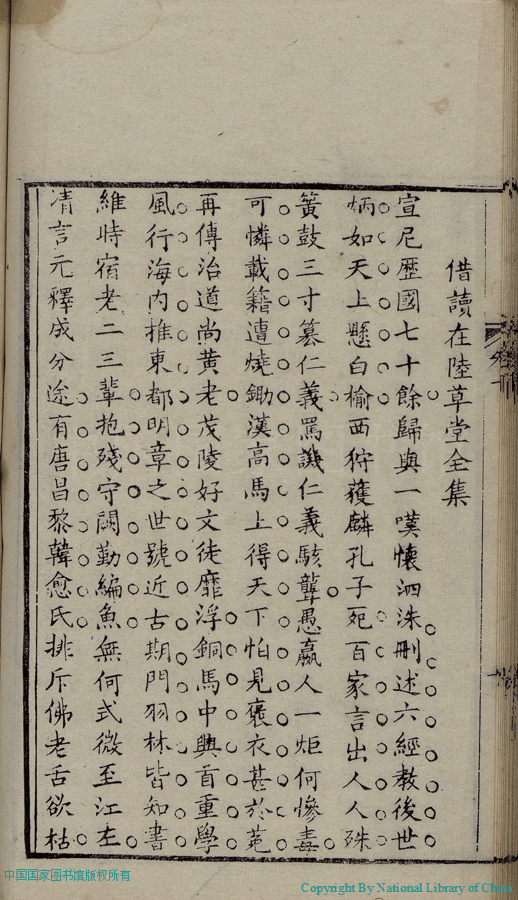 借讀在陸草堂全集
宣尼歷國七十餘歸與一嘆懷泗洙刪述六經教後世
炳如天上懸白榆西狩獲麟孔子死百家言出人人殊
簧鼓三寸篡仁義罵譏仁義駭聾愚嬴人一炬何慘毒
可憐載籍遭燒鋤漢高馬上得天下怕見褒衣甚於菟
再傳治道尚黃老茂陵好文徒靡浮銅馬中興首重學
風行海內推東都明章之世號近古期門羽林皆知書
維時宿老二三輩抱殘守闕勤編魚無何式微至江左
清言元釋成分途有唐昌黎韓愈氏排斥佛老舌欲枯
中国国家图书馆版权所有
Copyright By National Library of China